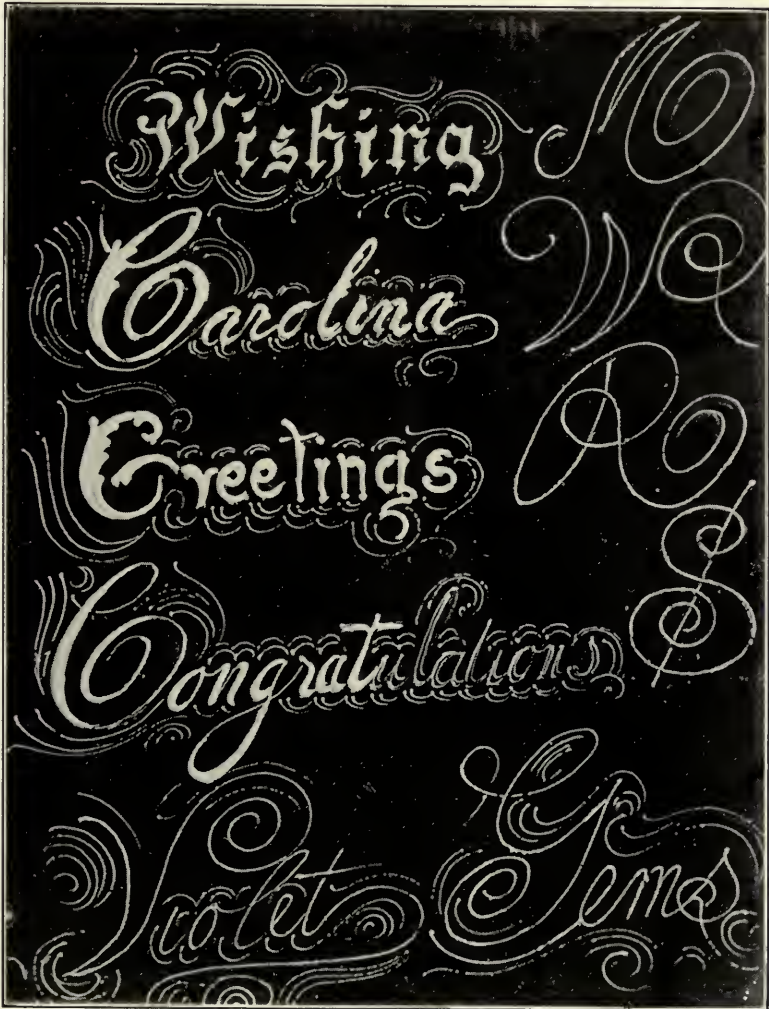 Wishing
M
Carolina
W R
Greetings
R
S
Congratulations
Violet
Gems